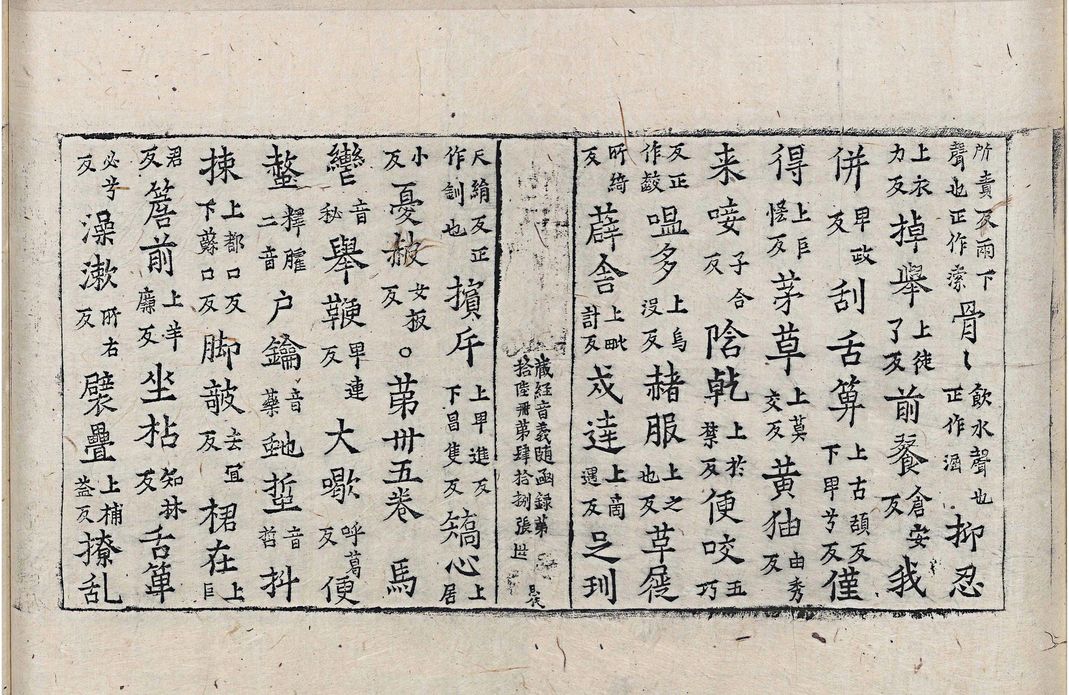 所責反雨下聲也正作索骨〻飲水聲也正作涸抑忍
力反上衣掉舉上徒了反前餐倉安反我
併畀政反刮舌箅上古頡反下畀兮反僅
得上巨慬反茅草上莫交反黃㹨由秀反
来唼子合反陰乹上於禁反便咬五巧
反正作齩嗢多上烏没反赭服上之也反草屣
所綺反薜舍上毗計反戍達上啇遇反足玔
藏經音義随函録第拾陸冊第肆拾捌張 世
天絹反正作訓也擯斥上畀進反下昌隻反矯心上居
小反憂赧女扳反。苐卅五卷 馬
轡音秘舉鞭畀連反大歇呼葛反便
螫釋䐶二音户鑰音藥虵蜇音哲抖
捒上都口反下蘇口反脚攲去宜反桾在上巨
君反簷前上羊廉反坐枮知林反舌箄
必兮反澡漱所右反襞疊上補益反撩乱